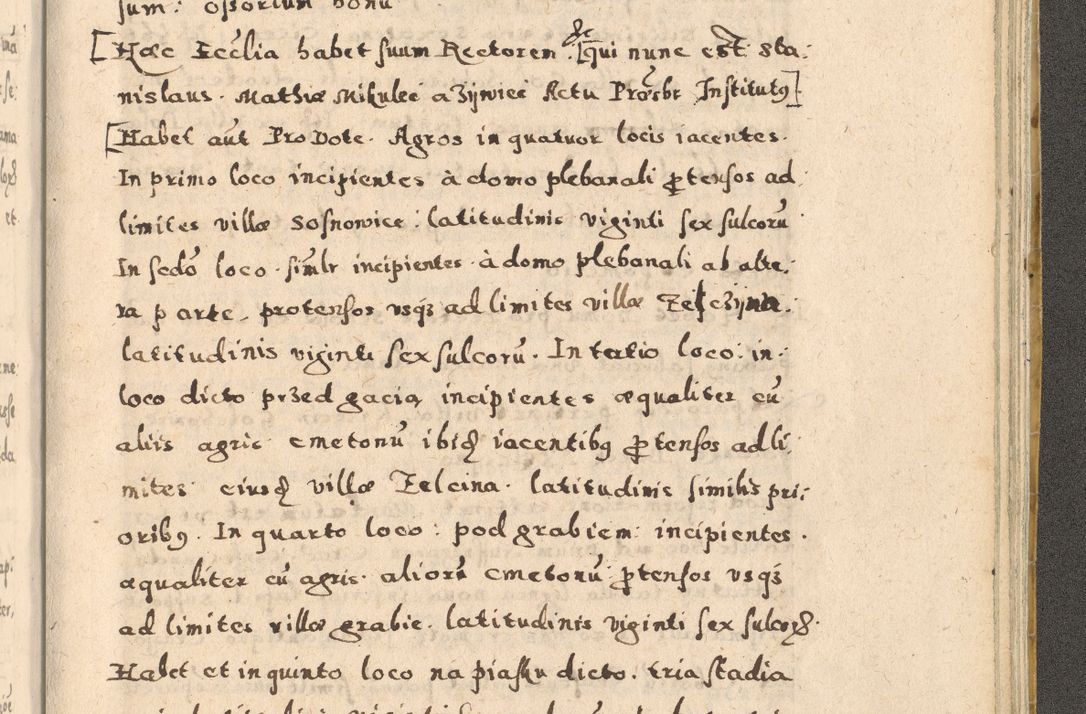 sum: ossorium bonu
[Hæc Eccłia habet suum Rectorem. &c [qui nunc est. Sta:
nislaus. Mathiæ Mikulec a Zÿwiec Actu Præsbr Institutꝰ]
[Habet aūt Pro Dote. Agros in quatuor locis iacentes.
In primo loco incipientes à domo plebanali ꝓtensos ad
limites villæ Sosnowice: latitudinis viginti sex sulcorū
In scdō loco. simlr incipientes à domo plebanali ab alte:
ra parte. protensos vsqꝫ ad limites villæ Zelczÿna.
latitudinis viginti sex sulcorū. In tertio loco: in:
loco dicto przed gacią incipientes æqualiter cū
aliis agris cmetonū ibiđ iacentibꝰ ꝓtensos ad li:
mites eiusđ villæ Zelcina. latitudinis similis pri:
oribꝰ. In quarto loco: pod grabiem: incipientes.
æqualiter cū agris aliorū cmetonū ꝓtensos vsqꝫ
ad limites villæ grabie. latitudinis viginti sex sulcoꝝ.
Habet et in quinto loco na piasku dicto. tria stadia